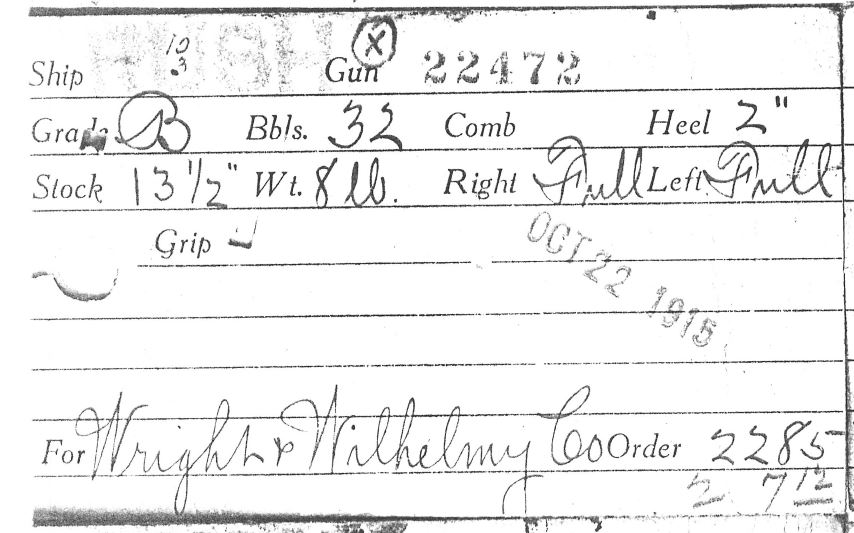 Ship 10 3 Gun X 22472
Grade B Bbls. 32 Comb Heel 2"
Stock 13 1/2" Wt. 8 lb. Right Full Left Full
Grip
OCT 22 1915
For Wright & Wilhelmy Co Order 2285
2 7 12